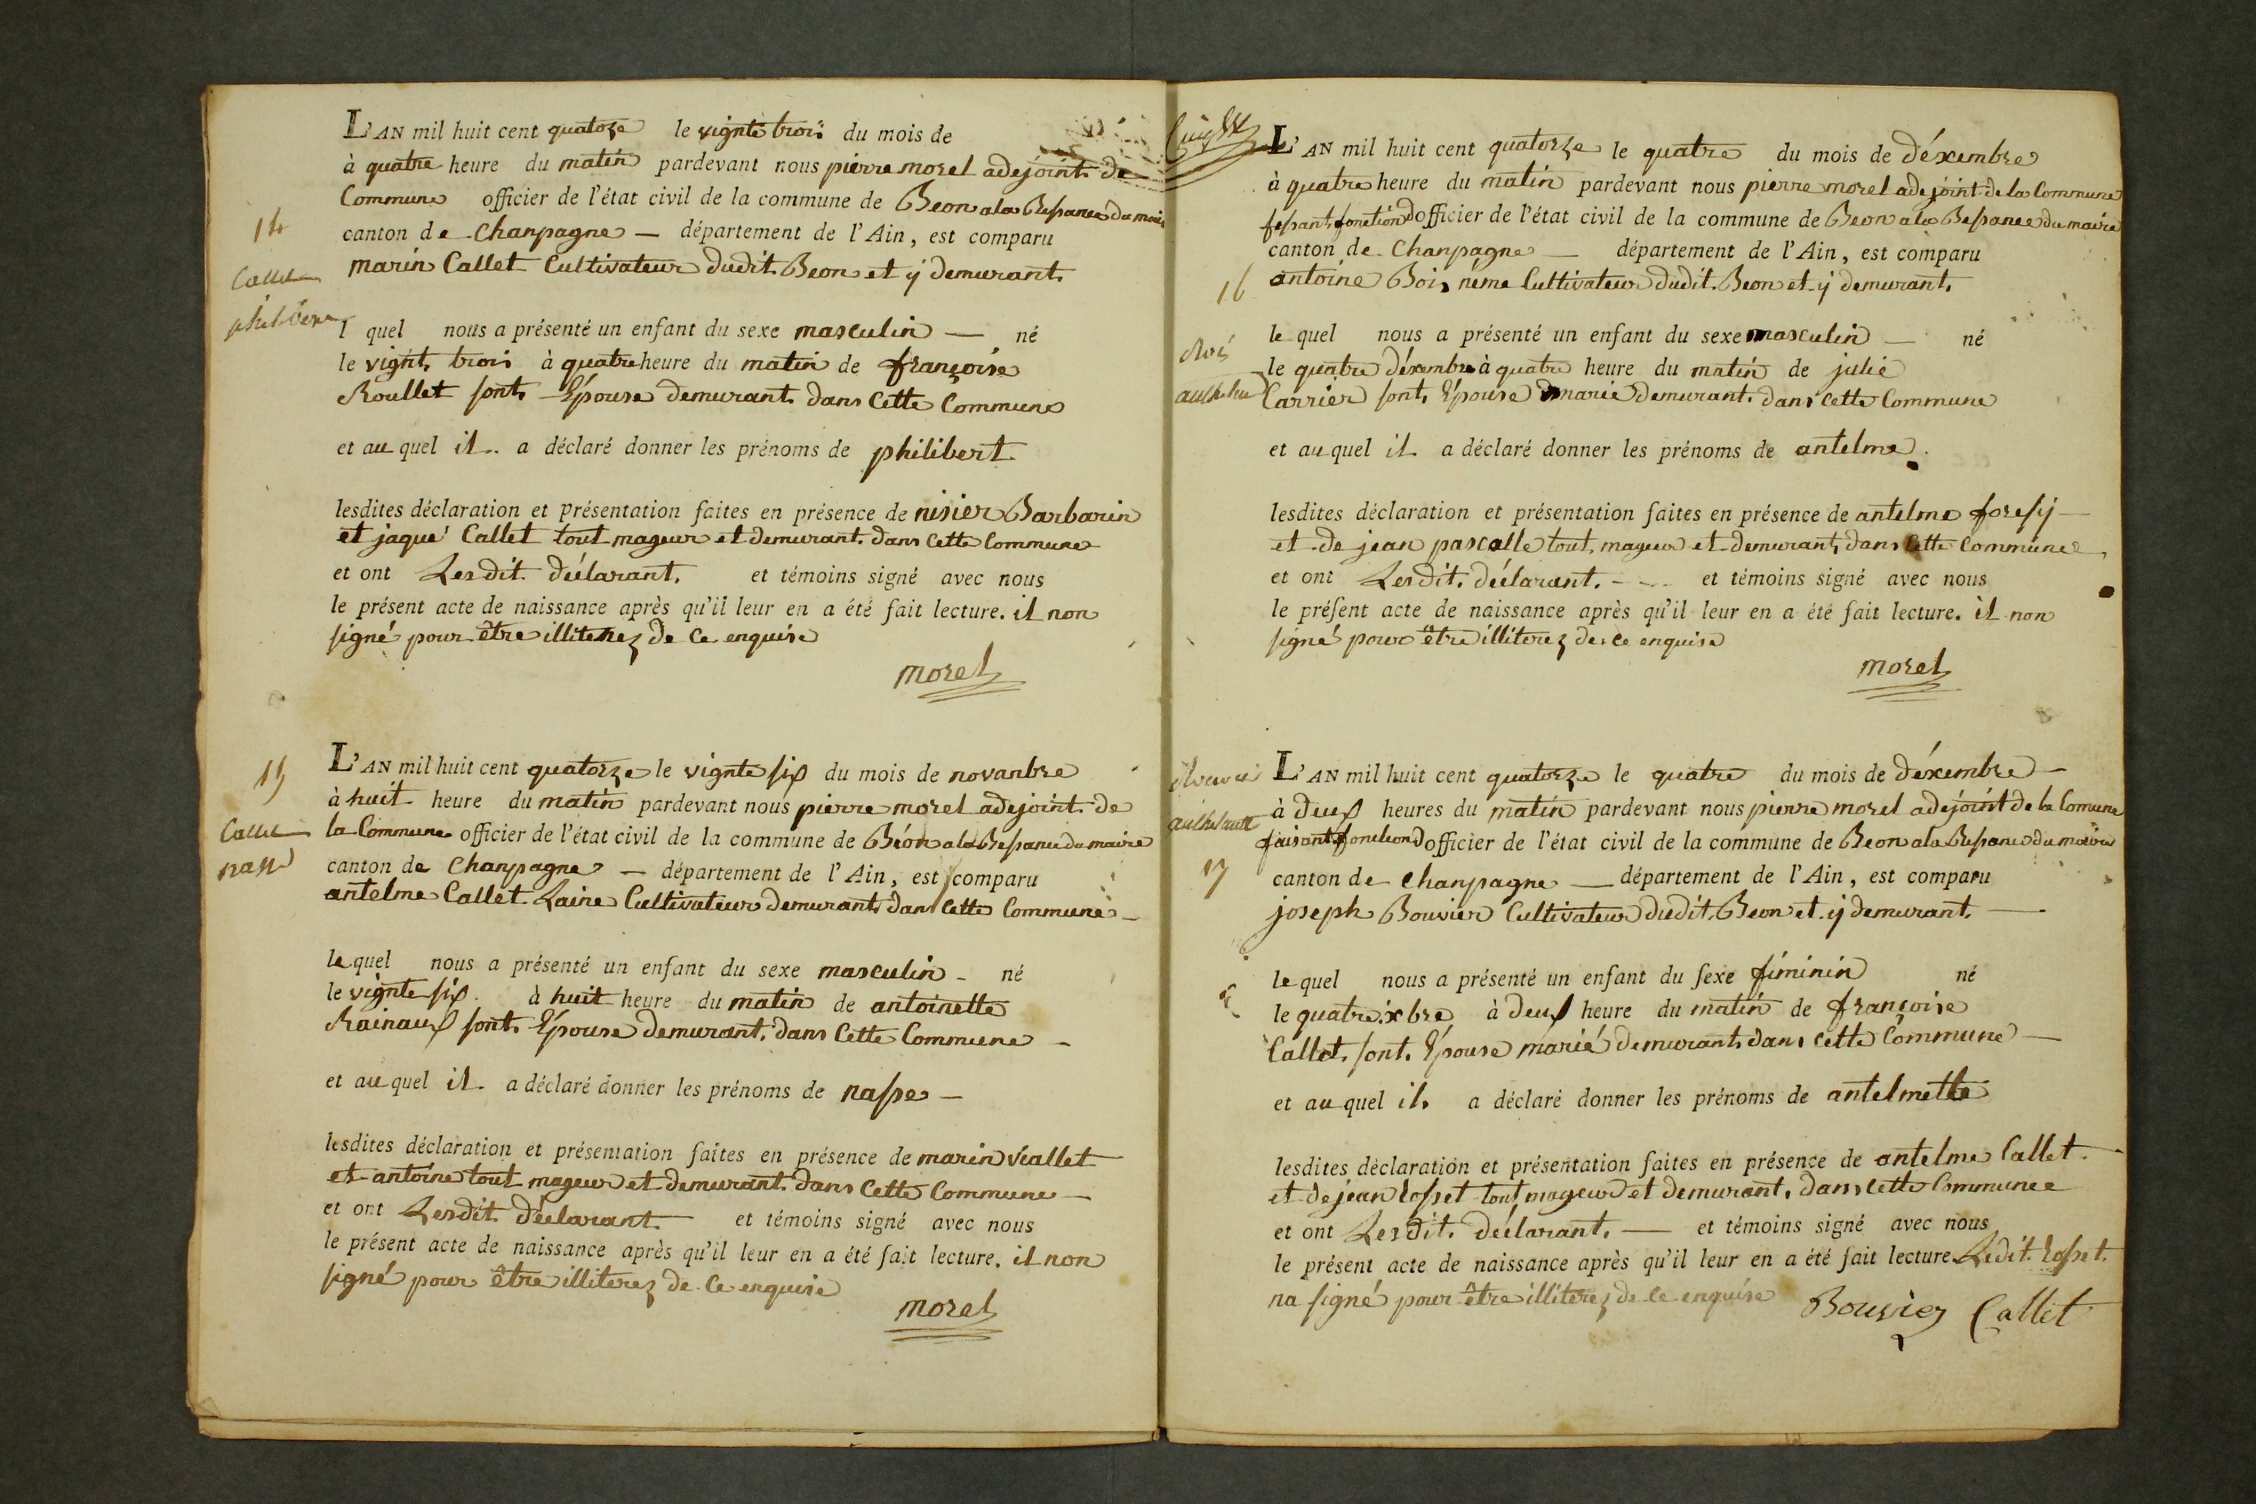 14
Callet
philibert
L'AN mil huit cent quatorze le vignte trois du mois de
à quatre heure du matin pardevant nous pierre morel adejoint de
Commune officier de l'état civil de la commune de Beon a la Bessance du maire
canton de Chanpagne — département de l'Ain, est comparu
marin Callet Cultivateur dudit Beon et y demurant
l quel nous a présenté un enfant du sexe masculin — né
le vight trois à quatre heure du matin de françoise
Roullet sont Epouse demurant dans Cette Commune
et au quel il a déclaré donner les prénoms de philibert
lesdites déclaration et présentation faites en présence de nisier Barbarin
et jaque Callet tout mageur et demurant dans Cette Commune
et ont Lesdit déclarant et témoins signé avec nous
le présent acte de naissance après qu'il leur en a été fait lecture. il non
signé pour être illiterez de Ce enquise
morel
15
Callet
L'AN mil huit cent quatorze le vignte six du mois de novanbre
à huit heure du matin pardevant nous pierre morel adejoint de
la Commune officier de l'état civil de la commune de Béon a la Bessance du maire
canton de Chanpagne — département de l'Ain, est comparu
antelme Callet Laine Cultivateur demurant dans Cette Commune —
le quel nous a présenté un enfant du sexe masculin — né
le vignte six à huit heure du matin de antoinette
Rainaux sont Epouse demurant dans Cette Commune —
et au quel il a déclaré donner les prénoms de nasse —
lesdites déclaration et présentation faites en présence de marin viallet
et antoine tout mageur et demurant dans Cette Commune —
et ont Lesdit déclarant et témoins signé avec nous
le présent acte de naissance après qu'il leur en a été fait lecture. il non
signé pour être illiterez de Ce enquise
morel
16
Bois
L'AN mil huit cent quatorze le quatre du mois de déxembre
à quatre heure du matin pardevant nous pierre morel adejoint de la Commune
fesant fonction d officier de l'état civil de la commune de Beon a la Bessance du maire
canton de Chanpagne — département de l'Ain, est comparu
antoine Bois néme Cultivateur dudit Beon et y demurant
le quel nous a présenté un enfant du sexe masculin — né
le quatre déxembre à quatre heure du matin de julie
Carrier sont Epouse marié demurant dans cette Commune
et au quel il a déclaré donner les prénoms de antelme
lesdites déclaration et présentation faites en présence de antelme foressy —
et de jean pascalle tout mageur et demurant dans Cette Commune
et ont Lesdit déclarant — et témoins signé avec nous
le présent acte de naissance après qu'il leur en a été fait lecture. il non
signé pour être illiterez de ce enquise
morel
17
L'AN mil huit cent quatorze le quatre du mois de déxembre —
à deux heures du matin pardevant nous pierre morel adejoint de la Comune
faisant fonction d officier de l'état civil de la commune de Beon a la Bessance du maire
canton de Chanpagne — département de l'Ain, est comparu
joseph Bouvier Cultivateur dudit Beon et y demurant —
le quel nous a présenté un enfant du sexe féminin né
le quatre xbre à deux heure du matin de françoise
Callet sont Epouse marié demurant dans cette Commune —
et au quel il a déclaré donner les prénoms de antelmette
lesdites déclaration et présentation faites en présence de antelme Callet
et de jean Cosset tout mageur et demurant dans cette Commune
et ont Lesdit déclarant — et témoins signé avec nous
le présent acte de naissance après qu'il leur en a été fait lecture Ledit Cosset
na signé pour être illiterez de ce enquise Bouvier Callet